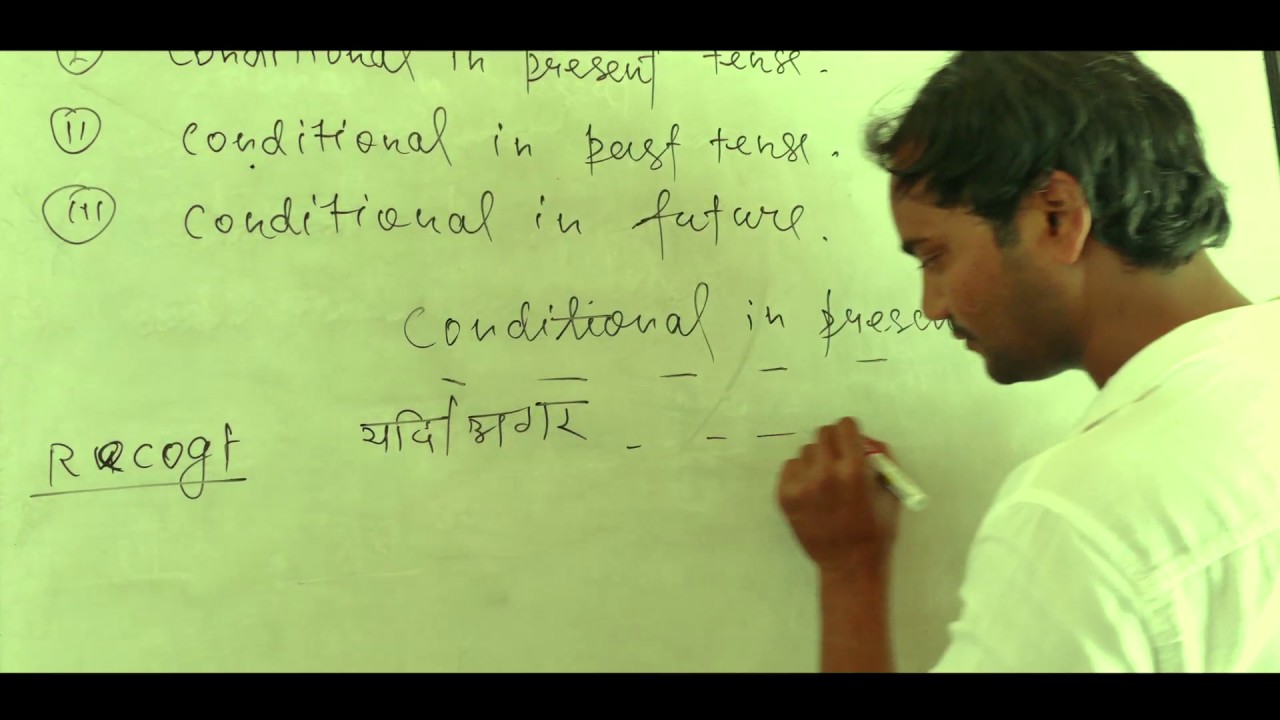 ① Conditional in present tense.
ⓘⓘ Conditional in past tense.
ⓘⓘⓘ Conditional in future.
Conditional in presen
Recogt यदि/अगर - - —